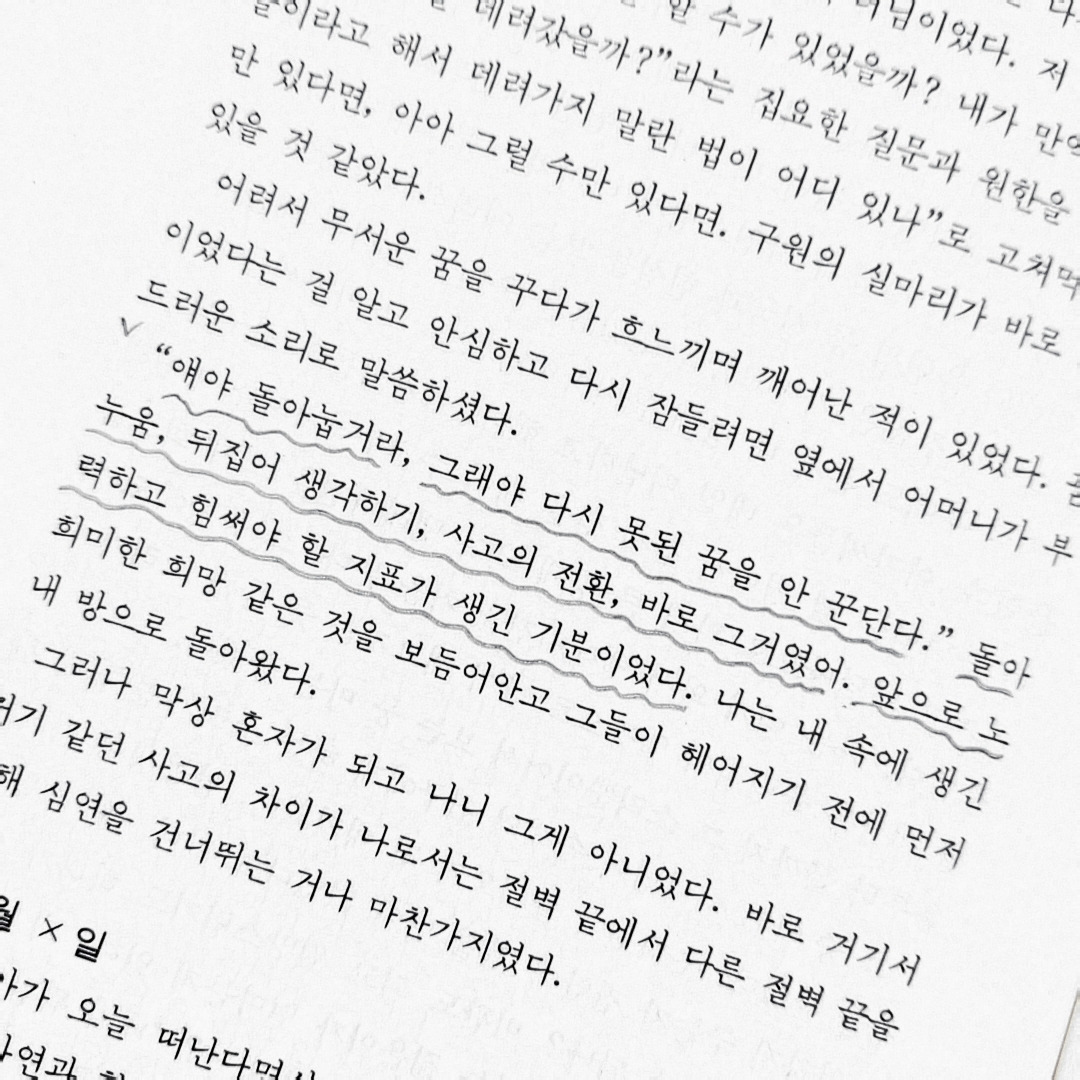 저
알 수가 있었을까? 내가
데려갔을까?”라는 집요한 질문과 원한을
해서 데려가지 말란 법이 어디 있나”로 고쳐먹
만 있다면, 아아 그럴 수만 있다면. 구원의 실마리가 바로
있을 것 같았다.
어려서 무서운 꿈을 꾸다가 흐느끼며 깨어난 적이 있었다. 꿈
이었다는 걸 알고 안심하고 다시 잠들려면 옆에서 어머니가 부
드러운 소리로 말씀하셨다.
“얘야 돌아눕거라, 그래야 다시 못된 꿈을 안 꾼단다.” 돌아
누움, 뒤집어 생각하기, 사고의 전환, 바로 그거였어. 앞으로 노
력하고 힘써야 할 지표가 생긴 기분이었다. 나는 내 속에 생긴
희미한 희망 같은 것을 보듬어안고 그들이 헤어지기 전에 먼저
내 방으로 돌아왔다.
그러나 막상 혼자가 되고 나니 그게 아니었다. 바로 거기서
같던 사고의 차이가 나로서는 절벽 끝에서 다른 절벽 끝을
해 심연을 건너뛰는 거나 마찬가지였다.
월 ×일
오늘